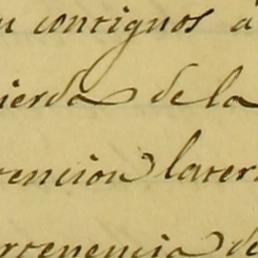 contiguos á
ierda de la
tencion later
ertenencia de